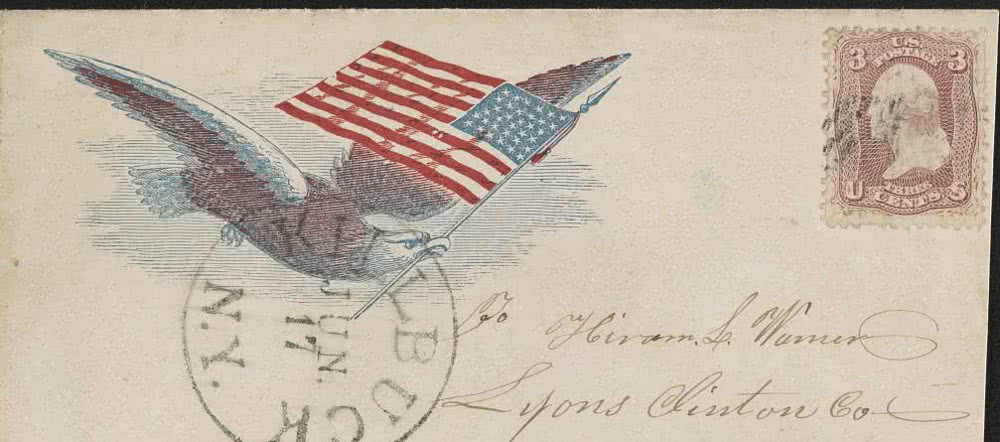 U.S.
POSTAGE
3 3
THREE
U CENTS S
KILLBUCK
JUN.
17
N.Y.
To Hiram. L. Warner
Lyons Clinton Co